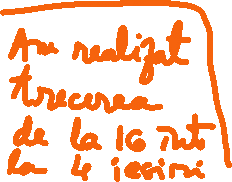 Am realizat
trecerea
de la 16 rute
la 4 iesiri